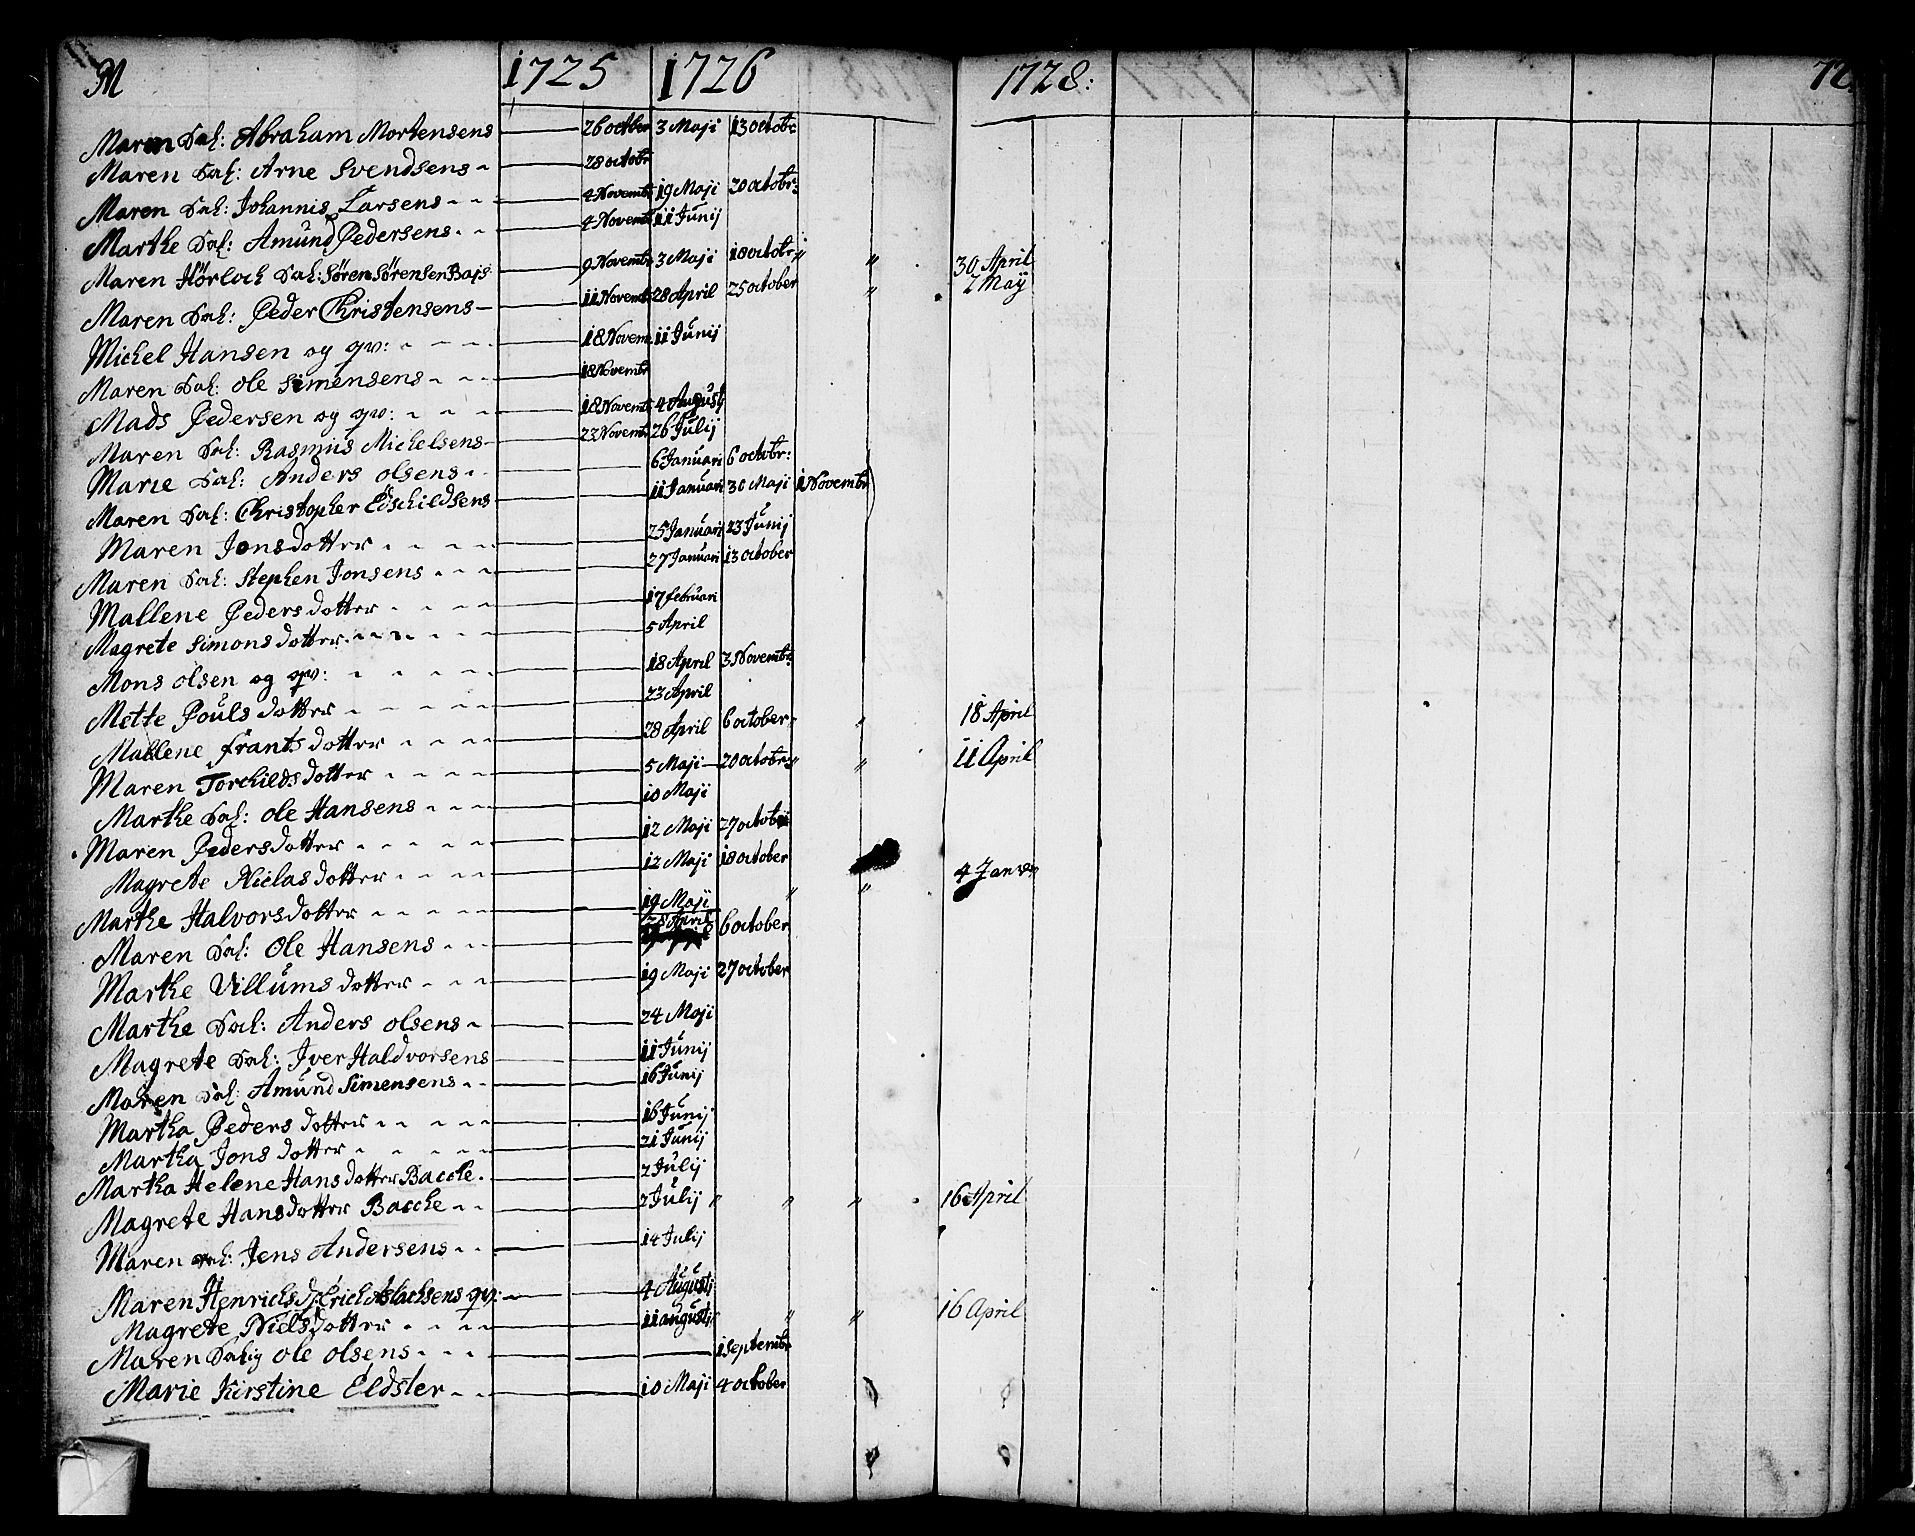 M 1725 1726 1728: 72.
Maren Sal: Abraham Mortensens 26 octber 3 Maji 13 octobr:
Maren Sal: Arne Svendsens 28 octobr
Maren Sal: Johannis Larsens 4 Novembr 19 Maji 20 octobr:
Marthe Sal: Amund Pedersens 4 Novembr 11 Junij
Maren Hörloch Sal: Sören Sörensen Bajs 9 Novembr 3 Maji 18 octobr " " 30 April
Maren Sal: Peder Christensens 11 Novembr 28 April 25 october " 2 Maÿ
Michel Hansen og qv: 18 Novem 11 Junij
Maren Sal: ole Simensens 18 Novembr
Mads Pedersen og qv: 18 Novembr 4 August
Maren Sal: Rasmus Michelsens 23 Novembr 26 Julij
Marie Sal: Anders olsens 6 Januari 6 octobr:
Maren Sal: Christopher Edschildsens 11 Januari 30 Maji 1 Novembr
Maren Jonsdotter 25 Januari 23 Junij
Maren Sal: Stephen Jonsens 27 Januari 13 october
Mallene Pedersdotter 17 februari
Magrete Simonsdotter 5 April
Mons olsen og qv: 18 April 3 Novembr:
Mette Poulsdotter 23 April
Mallene frantsdotter 28 April 6 october " " 18 April
Maren Torchildsdotter 5 Maji 20 octobr " " 11 April
Marthe Sal: ole Hansens 10 Maji
Maren Pedersdotter 12 Maji 27 octobr
Magrete Niclasdotter 12 Maji 18 october
Marthe Halvorsdotter 19 Maji " " 4 Janv
Maren Sal: Ole Hansens 28 April 6 october
Marthe Villumsdotter 19 Maji 27 october
Marthe Sal: Anders olsens 24 Maji
Magrete Sal: Iver Haldvorsens 11 Junij
Maren Sal: Amund Simensens 16 Junij
Martha Pedersdotter 16 Junij
Martha Jonsdotter 21 Junij
Martha Helene Hansdotter Bacche 2 Julij
Magrete Hansdotter Bacche 2 Julij " " " 16 April
Maren Sal: Jens Andersens 14 Julij
Maren Henrichsd: Erich Aslachsens qv: 4 Augustj
Magrete Nielsdotter 11 augustj " " 16 April
Maren Salig ole olsens 1 Septembr
Marie Kirstine Eldsler 10 Maji 4 october